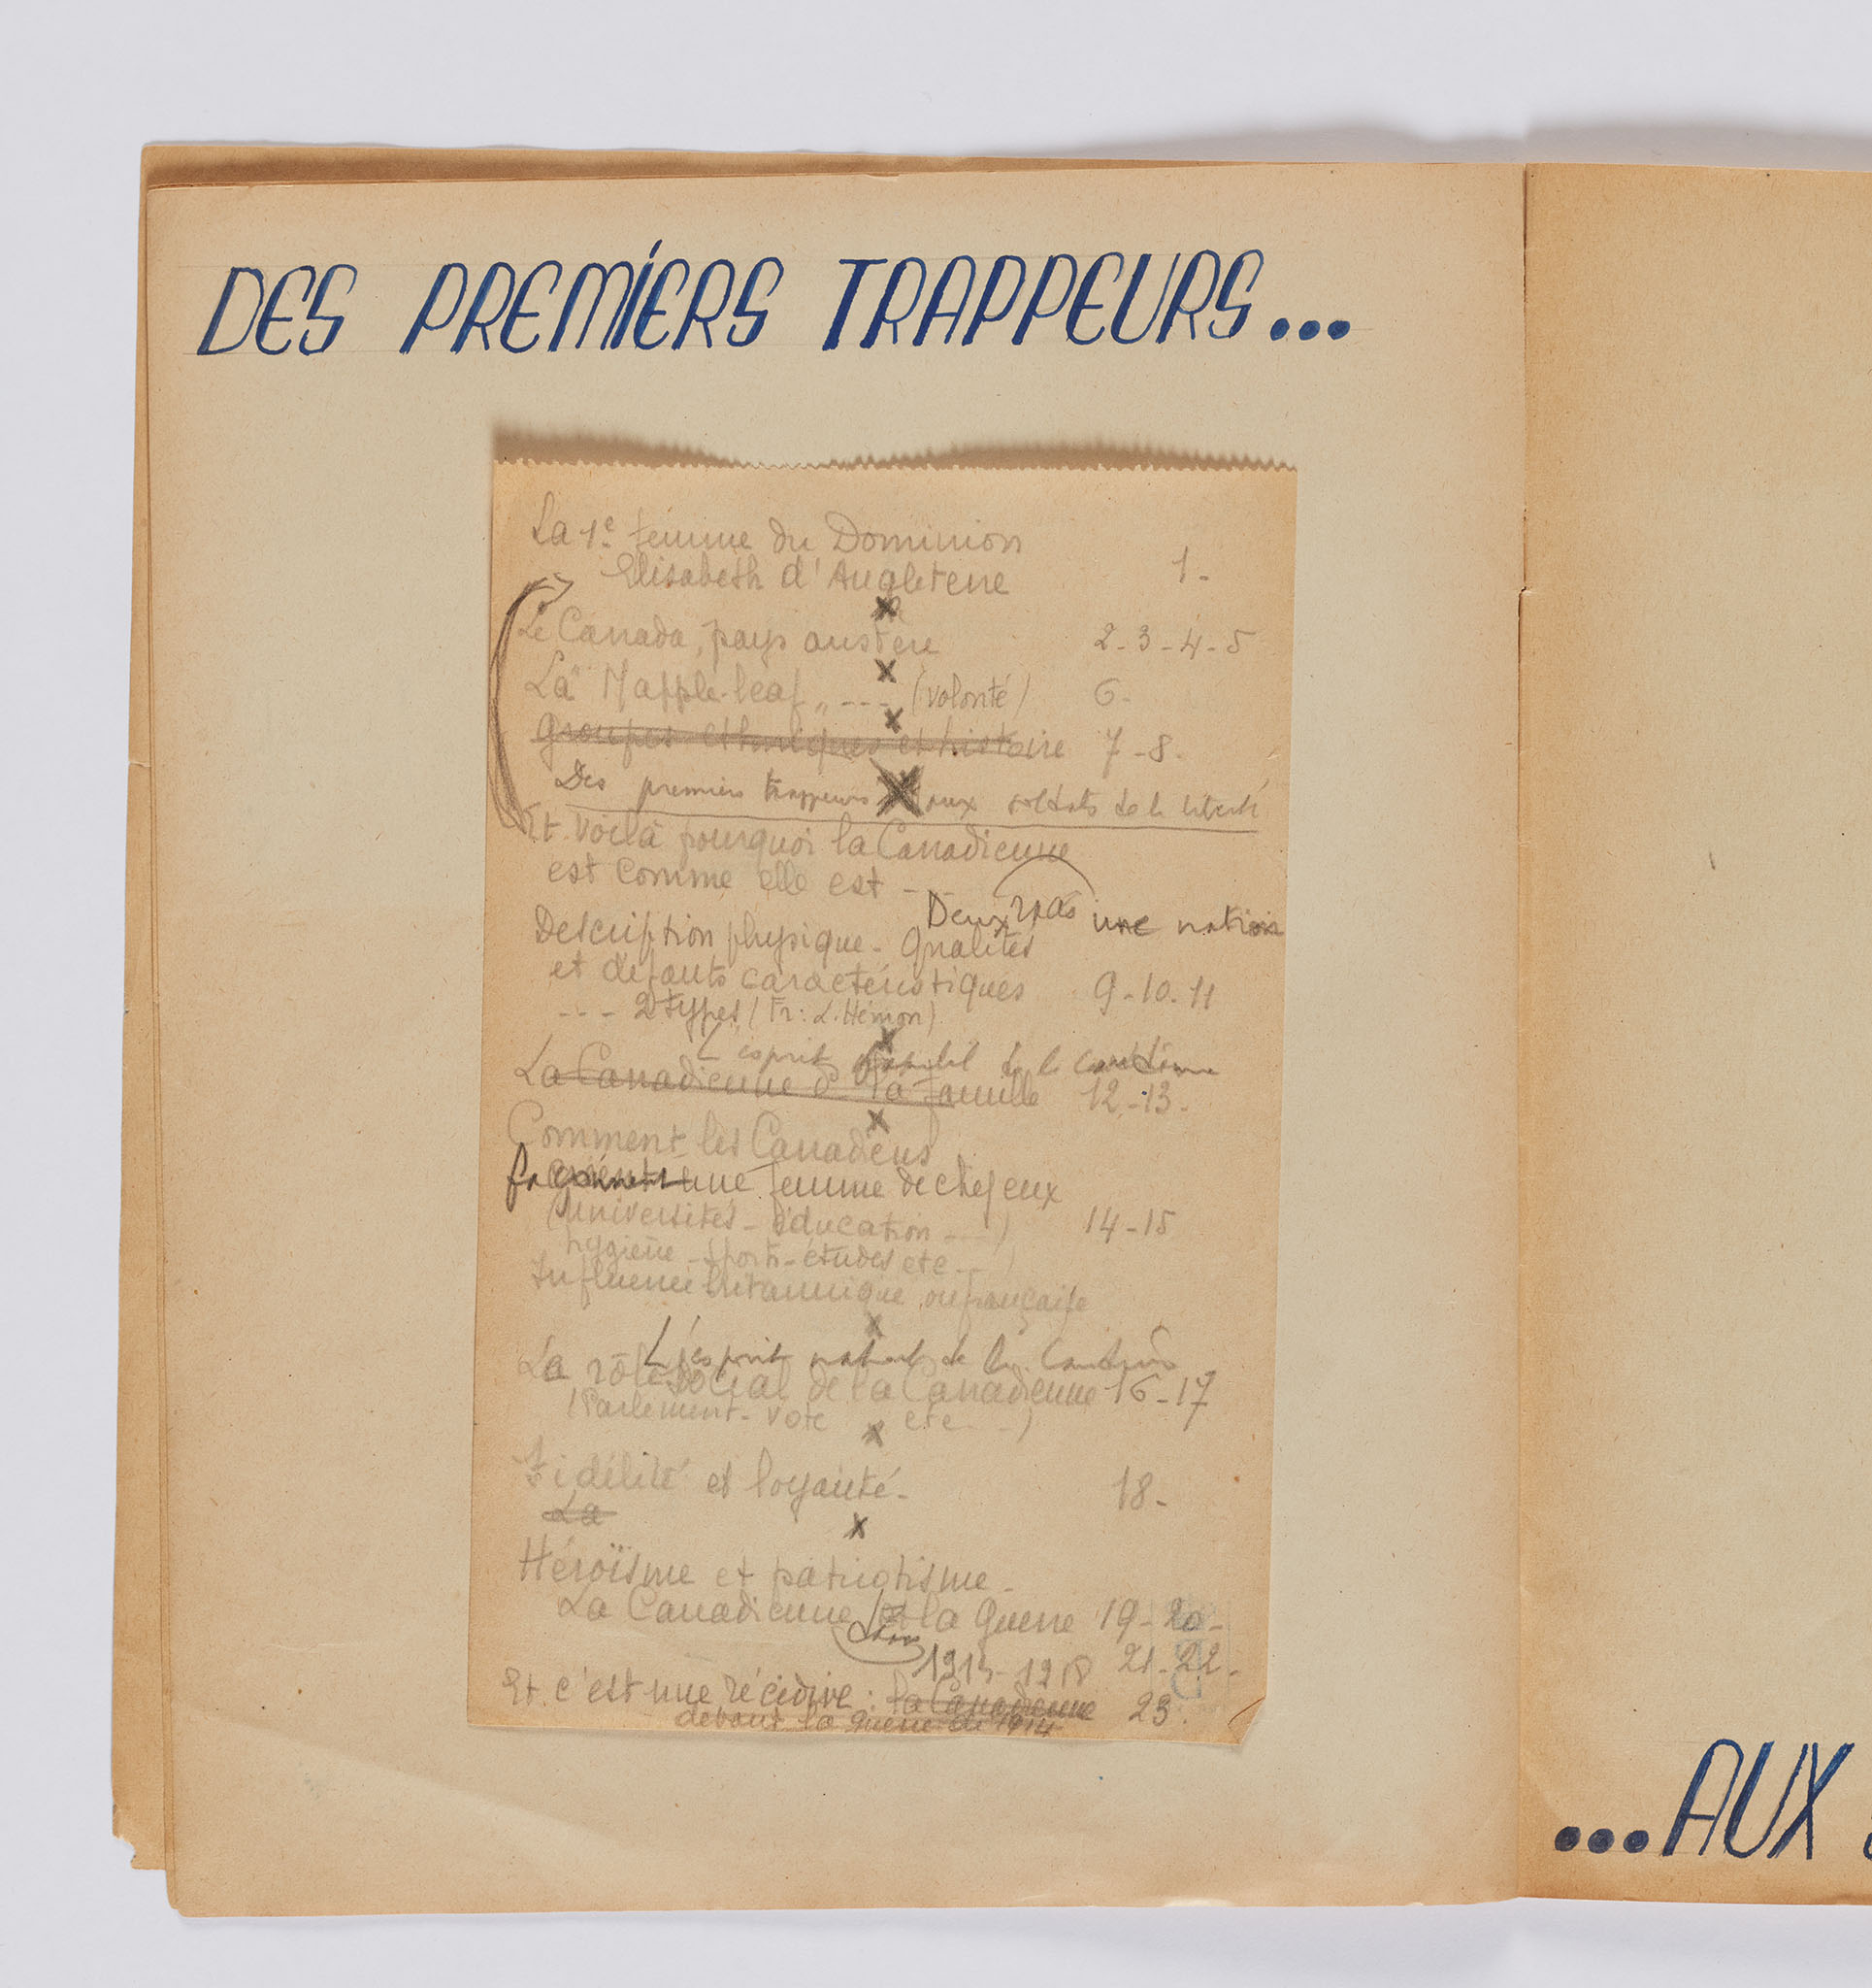 DES PREMIERS TRAPPEURS...
La 1e femme du Dominion
Elisabeth d'Angleterre 1-
x
Le Canada, pays austère 2-3-4-5
x
La "Mapple-leaf" --- (volonté) 6-
x
groupes ethniques et histoire 7-8-
Des premiers trappeurs aux soldats de la liberté
Et voilà pourquoi la Canadienne
est comme elle est --
Deux races une nation
Description physique - Qualités
et défauts caractéristiques 9-10-11
--- 2 types (Fr: L. Hémon)
x
L'esprit familial de la Canadienne
La Canadienne & la famille 12-13-
x
Comment les Canadiens
une femme de chez eux
(Universités - éducation ---) 14-15
hygiène - sports - études etc --
Influence britannique ou française
x
L'esprit national de la Canadienne
La rôle social de la Canadienne 16-17
(Parlement - vote etc --)
x
Fidélité et loyauté - 18-
La
x
Héroïsme et patriotisme -
La Canadienne et la guerre 19-20-
dans
1914-1918 21-22-
Et c'est une récidive : la Canadienne 23.
devant la guerre de 1914
...AUX